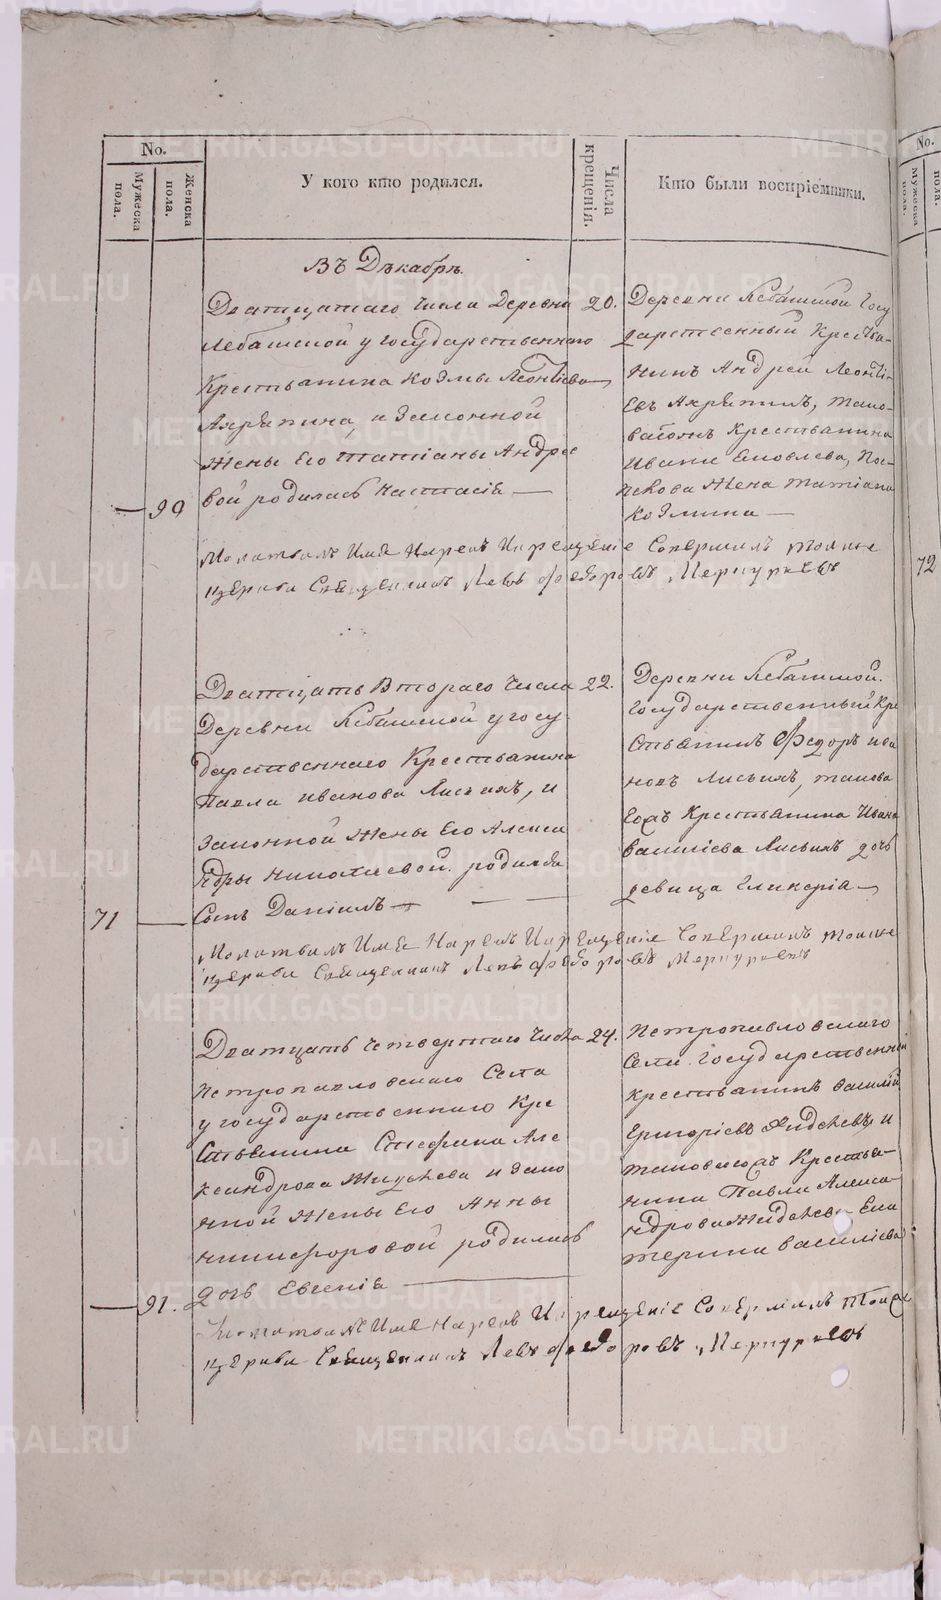 No.
Мужеска пола.
Женска пола.
У кого кто родился.
Числа крещенія.
Кто были воспріемники.
Въ Декабрѣ.
Дватцатаго Числа Деревни
Лебашской у государственнаго
Крестьянина Козмы Леонтіева
и Законной
Жены Его Татіаны Андрее
вой родилась Настасія —
— 90
20.
Деревни Госу
дарственный Крестья-
нинъ Андрей Леонті-
евъ тако-
ваго Крестьянина
Ивана Яковлева
Жена Татіана
Козмина —
Молитвилъ Имя Нарекъ И крещеніе Совершилъ тояже
церкви Священникъ Левъ Федоровъ Меркурьевъ
Двατцать Втораго Числа
Деревни у госу
дарственнаго Крестьянина
Павла Иванова Лисьихъ, и
Законной Жены Его Алекса
ндры Николаевой родился
Сынъ Даніилъ —
71 —
22.
Деревни
Государственный Кре
стьянинъ Федоръ Ива
новъ Лисьихъ, такова
Крестьянина Ивана
Василіева Лисьихъ дочь
девица Гликерія —
Молитвилъ Имя Нарекъ И крещеніе Совершилъ тояже
церкви Священникъ Левъ Федоровъ Меркурьевъ
Двατцать четвертаго Числа
Петропавловскаго Села
у государственнаго Кре
стьянина Стефана Але
ксандрова и зако
нной Жены Его Анны
Никифоровой родилась
дочь Евгенія —
— 91.
24.
Петропавловскаго
Села Государственный
крестьянинъ Василій
Григоріевъ и
Крестья-
нина Павла Алекса-
ндрова Ека
терина Василіева
Имя Нарекъ И крещеніе Совершилъ тояже
церкви Священникъ Левъ Федоровъ Меркурьевъ
No.
Мужеска пола.
72
METRIKI.GASO-URAL.RU